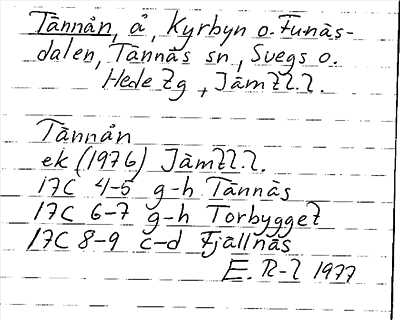 Tännån, å, Kyrbyn o. Funäs-
dalen, Tännäs sn, Svegs o.
Hede tg, Jämtl. l.
Tännån
ek (1976) Jämtl. l.
17C 4-5 g-h Tännäs
17C 6-7 g-h Torbygget
17C 8-9 c-d Fjällnäs
E. R-l 1977